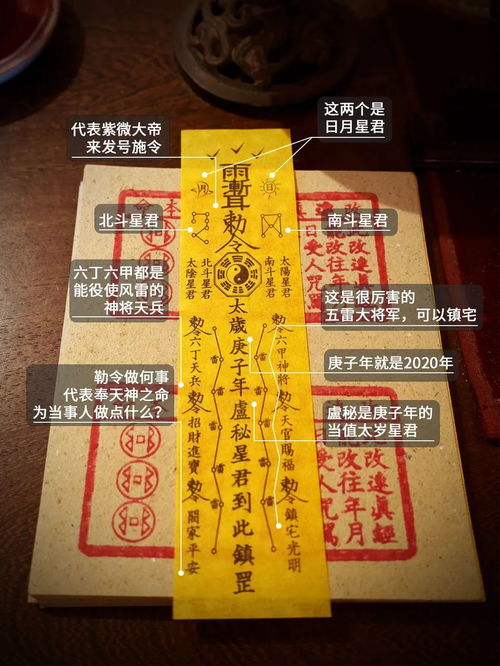 代表紫微大帝
来发号施令
这两个是
日月星君
北斗星君
南斗星君
六丁六甲都是
能役使风雷的
神将天兵
这是很厉害的
五雷大将军，可以镇宅
庚子年就是2020年
勒令做何事
代表奉天神之命
为当事人做点什么？
盧秘是庚子年的
当值太岁星君
敕令
太陰星君
北斗星君
南斗星君
太陽星君
太歲庚子年盧秘星君到此鎮罡
敕令六丁天兵
敕令六甲神將
敕令招財進寶
敕令天官賜福
闔家平安
敕令鎮宅光明
雷
雷
雷
雷
雷
雷
雷
雷
雷
雷
改連真經
能改往年月
日受人咒罵
本命
改連真經
能改往年月
受人咒罵